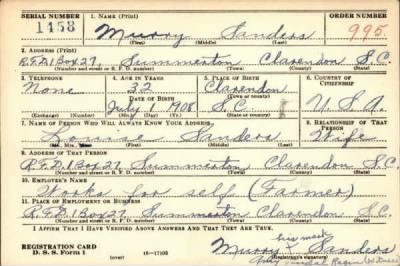 SERIAL NUMBER 1. NAME (Print) ORDER NUMBER
1458 Murry Sanders 995.
(First) (Middle) (Last)
2. ADDRESS (Print)
R.F.D.1 Box 27, Summerton Clarendon S.C.
(Number and street or R. F. D. number) (Town) (County) (State)
3. TELEPHONE 4. AGE IN YEARS 5. PLACE OF BIRTH 6. COUNTRY OF CITIZENSHIP
None 32 Clarendon
DATE OF BIRTH (Town or county)
July 1 1908 S.C. U.S.A.
(Exchange) (Number) (Mo.) (Day) (Yr.) (State or country)
7. NAME OF PERSON WHO WILL ALWAYS KNOW YOUR ADDRESS 8. RELATIONSHIP OF THAT PERSON
Louise Sanders Wife
(First) (Middle) (Last)
9. ADDRESS OF THAT PERSON
R.F.D.1 Box 27 Summerton Clarendon S.C.
(Number and street or R. F. D. number) (Town) (County) (State)
10. EMPLOYER'S NAME
Works for self (Farmer)
11. PLACE OF EMPLOYMENT OR BUSINESS
R.F.D.1 Box 27 Summerton Clarendon S.C.
(Number and street or R. F. D. number) (Town) (County) (State)
I AFFIRM THAT I HAVE VERIFIED ABOVE ANSWERS AND THAT THEY ARE TRUE.
his mark
REGISTRATION CARD Murry x Sanders
D. S. S. Form 1 (over) 16-17105 (Registrant's signature)